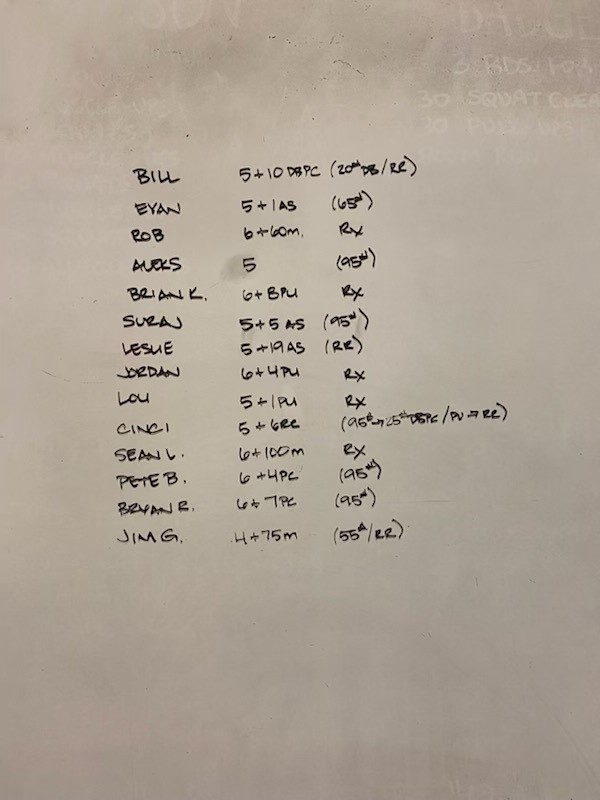 3 RDS.
30 SQUAT CLEA
BILL 5+10 DBPC (20# DB/RR)
EVAN 5+1AS (65#)
ROB 6+60m. Rx
ALEKS 5 (95#)
BRIAN K. 6+8PU Rx
SURAJ 5+5 AS (95#)
LESLIE 5+19AS (RR)
JORDAN 6+4PU Rx
LOU 5+1PU Rx
CINCI 5+6RR (95#→25# DBPC/PU→RR)
SEAN L. 6+100m Rx
PETE B. 6+4PC (95#)
BRYAN R. 6+7PC (95#)
JIM G. 4+75m (55#/RR)